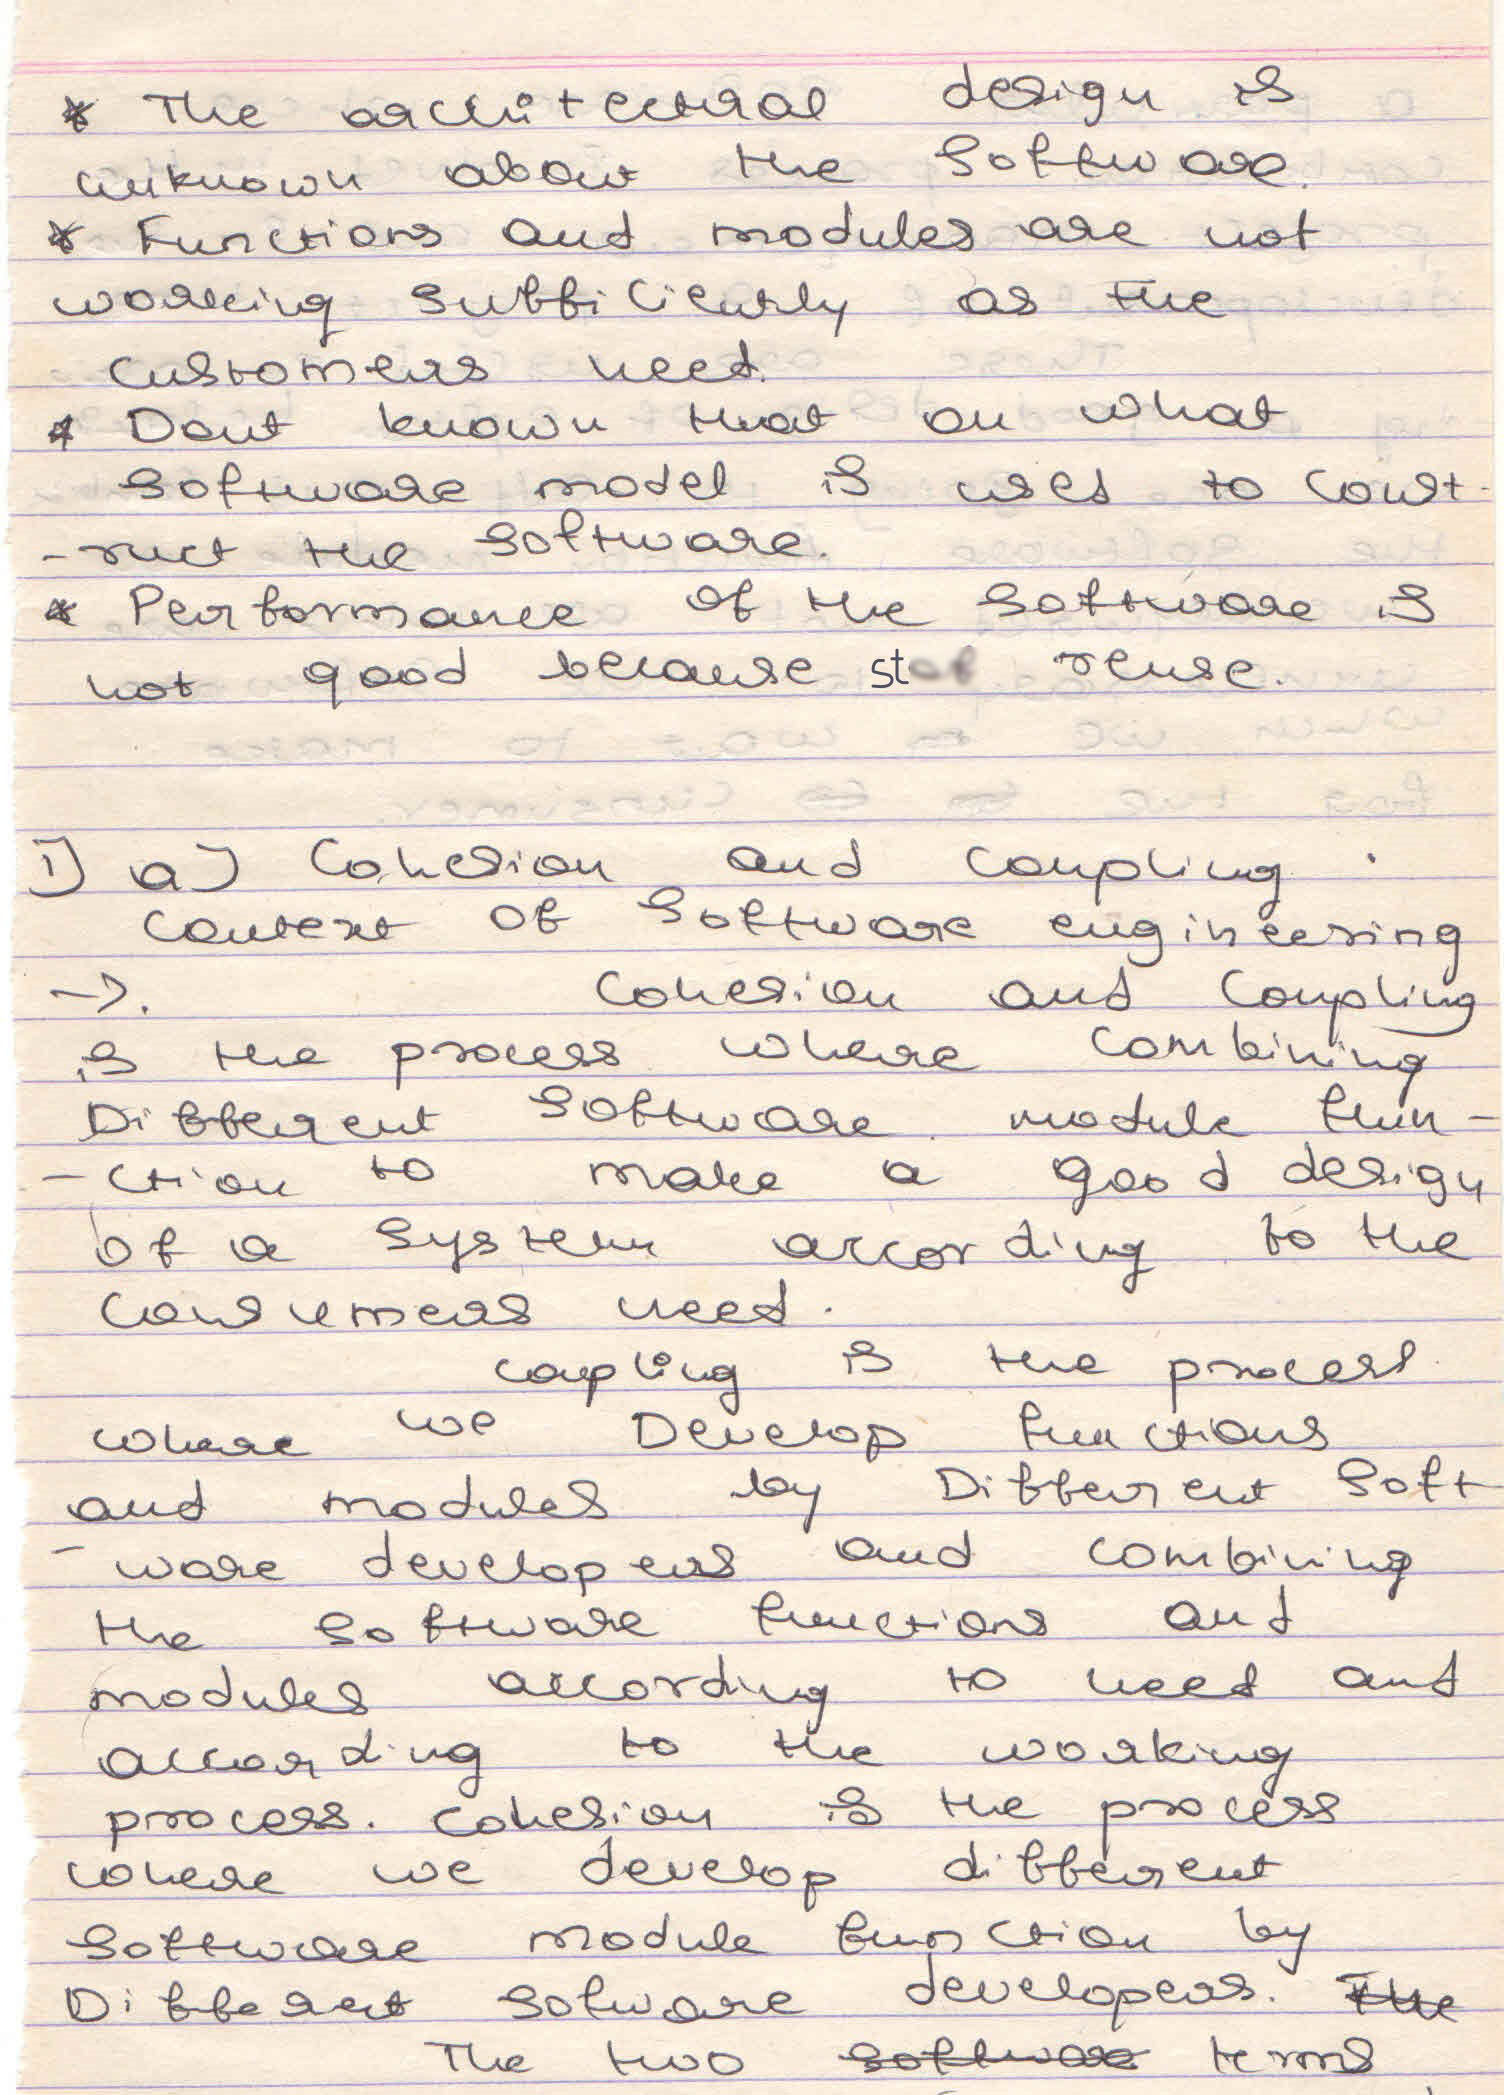 * The architectural design is
unknown about the software.
* Functions and modules are not
working sufficiently as the
customers need.
* Dont known that on what
software model is used to const-
-ruct the software.
* Performance of the software is
not good because reuse.
1) a) Cohesion and coupling .
context of software engineering
->. Cohesion and coupling
is the process where combining
Different software module fun-
-ction to make a good design
of a system according to the
consumers need.
coupling is the process
where we Develop functions
and modules by Different soft
-ware developers and combining
the software functions and
modules according to need and
according to the working
process. cohesion is the process
where we develop different
software module function by
Different sotware developers. The
The two software terms